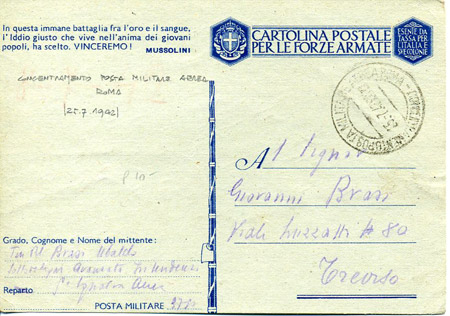 In questa immane battaglia fra l'oro e il sangue,
l'Iddio giusto che vive nell'anima dei giovani
popoli, ha scelto. VINCEREMO! MUSSOLINI
CARTOLINA POSTALE
PER LE FORZE ARMATE
ESENTE DA
TASSA PER
L'ITALIA E
SVE COLONIE
CONCENTRAMENTO POSTA MILITARE AEREA
ROMA
(25.7.1942)
p 10-
Al Signor
Giovanni Brasi
Viale Luzzatti # 80
Treviso
Grado, Cognome e Nome del mittente:
Brasi
Reparto
POSTA MILITARE